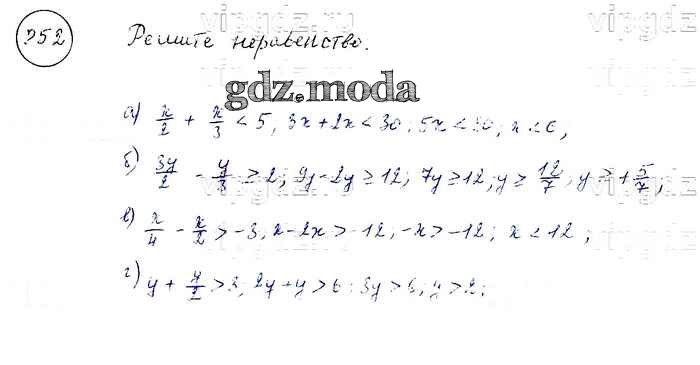 952 Решите неравенство.
gdz.moda
а) x/2 + x/3 < 5, 3x+2x < 30; 5x < 30, x < 6,
б) 3y/2 - y/3 ≥ 2; 9y-2y ≥ 12; 7y ≥ 12, y ≥ 12/7, y ≥ +5/7,
в) x/4 - x/2 > -3, x-2x > -12, -x > -12; x < 12;
г) y + y/2 > 3, 2y+y > 6; 3y > 6, y > 2;
vipgdz